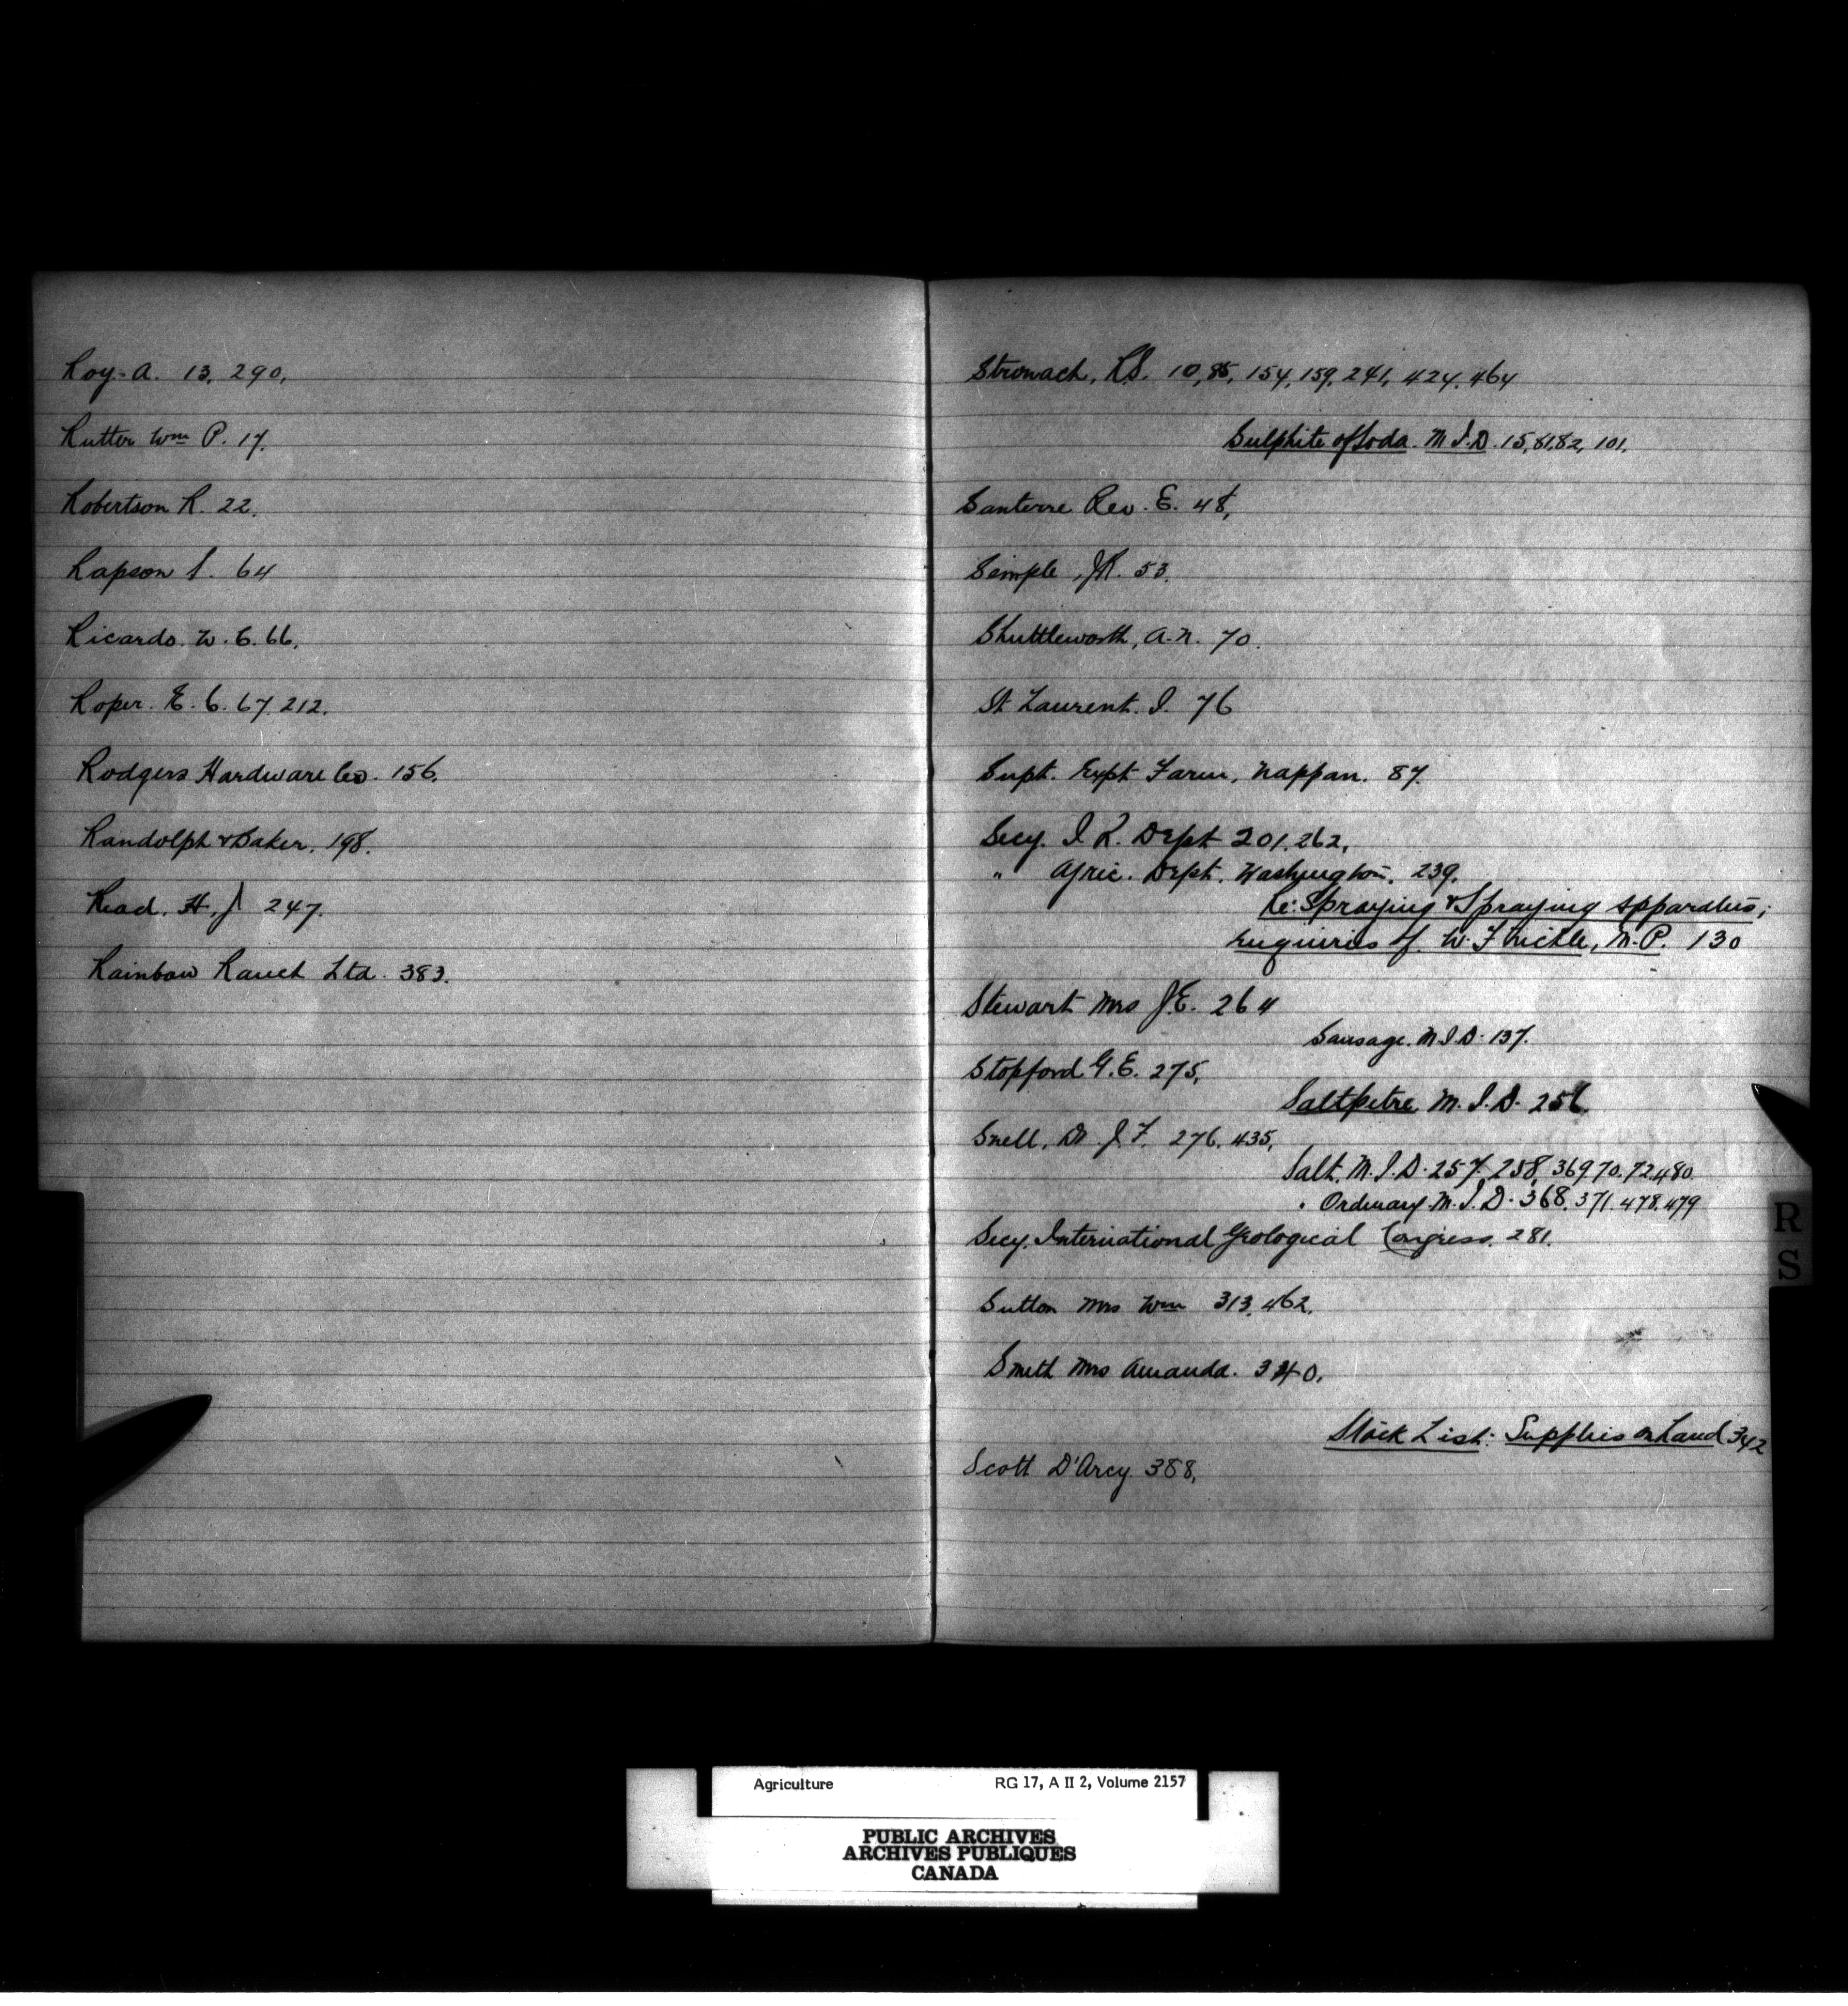 Roy. A. 13, 290,
Rutter Wm P. 17.
Robertson R. 22.
Rapson S. 64
Ricardo. W. C. 66,
Roper. E. C. 67, 212.
Rodgers Hardware Co. 156.
Randolph & Baker. 198.
Read. H. J 247.
Rainbow Ranch Ltd. 383.
Stronach, R.S. 10, 85, 154, 159, 241, 424, 464
Sulphite of Soda. M.I.D. 15, 81,82, 101.
Santerre Rev. E. 48,
Semple, J.R. 53.
Shuttleworth, A.N. 70.
St Laurent. I. 76
Supt. Expt Farm, Nappan. 87.
Secy. I R. Dept 201, 262,
" Agric. Dept. Washington. 239.
Re: Spraying & Spraying Apparatus;
Enquiries of W. F Nickle, M.P. 130
Stewart Mrs J.E. 264
Sausage. M.I.D. 137.
Stopford G.E. 275,
Saltpetre M.I.D. 256.
Snell, Dr J.F. 276, 435,
Salt. M.I.D. 257, 258, 369.70.72.480
" Ordinary M.I.D. 368, 371. 478. 479
Secy. International Geological Congress. 281.
Sutton Mrs Wm 313, 462.
Smith Mrs Amanda. 340.
Stock List: Supplies on hand 342
Scott D'Arcy 388,
R
S
Agriculture RG 17, A II 2, Volume 2157
PUBLIC ARCHIVES
ARCHIVES PUBLIQUES
CANADA